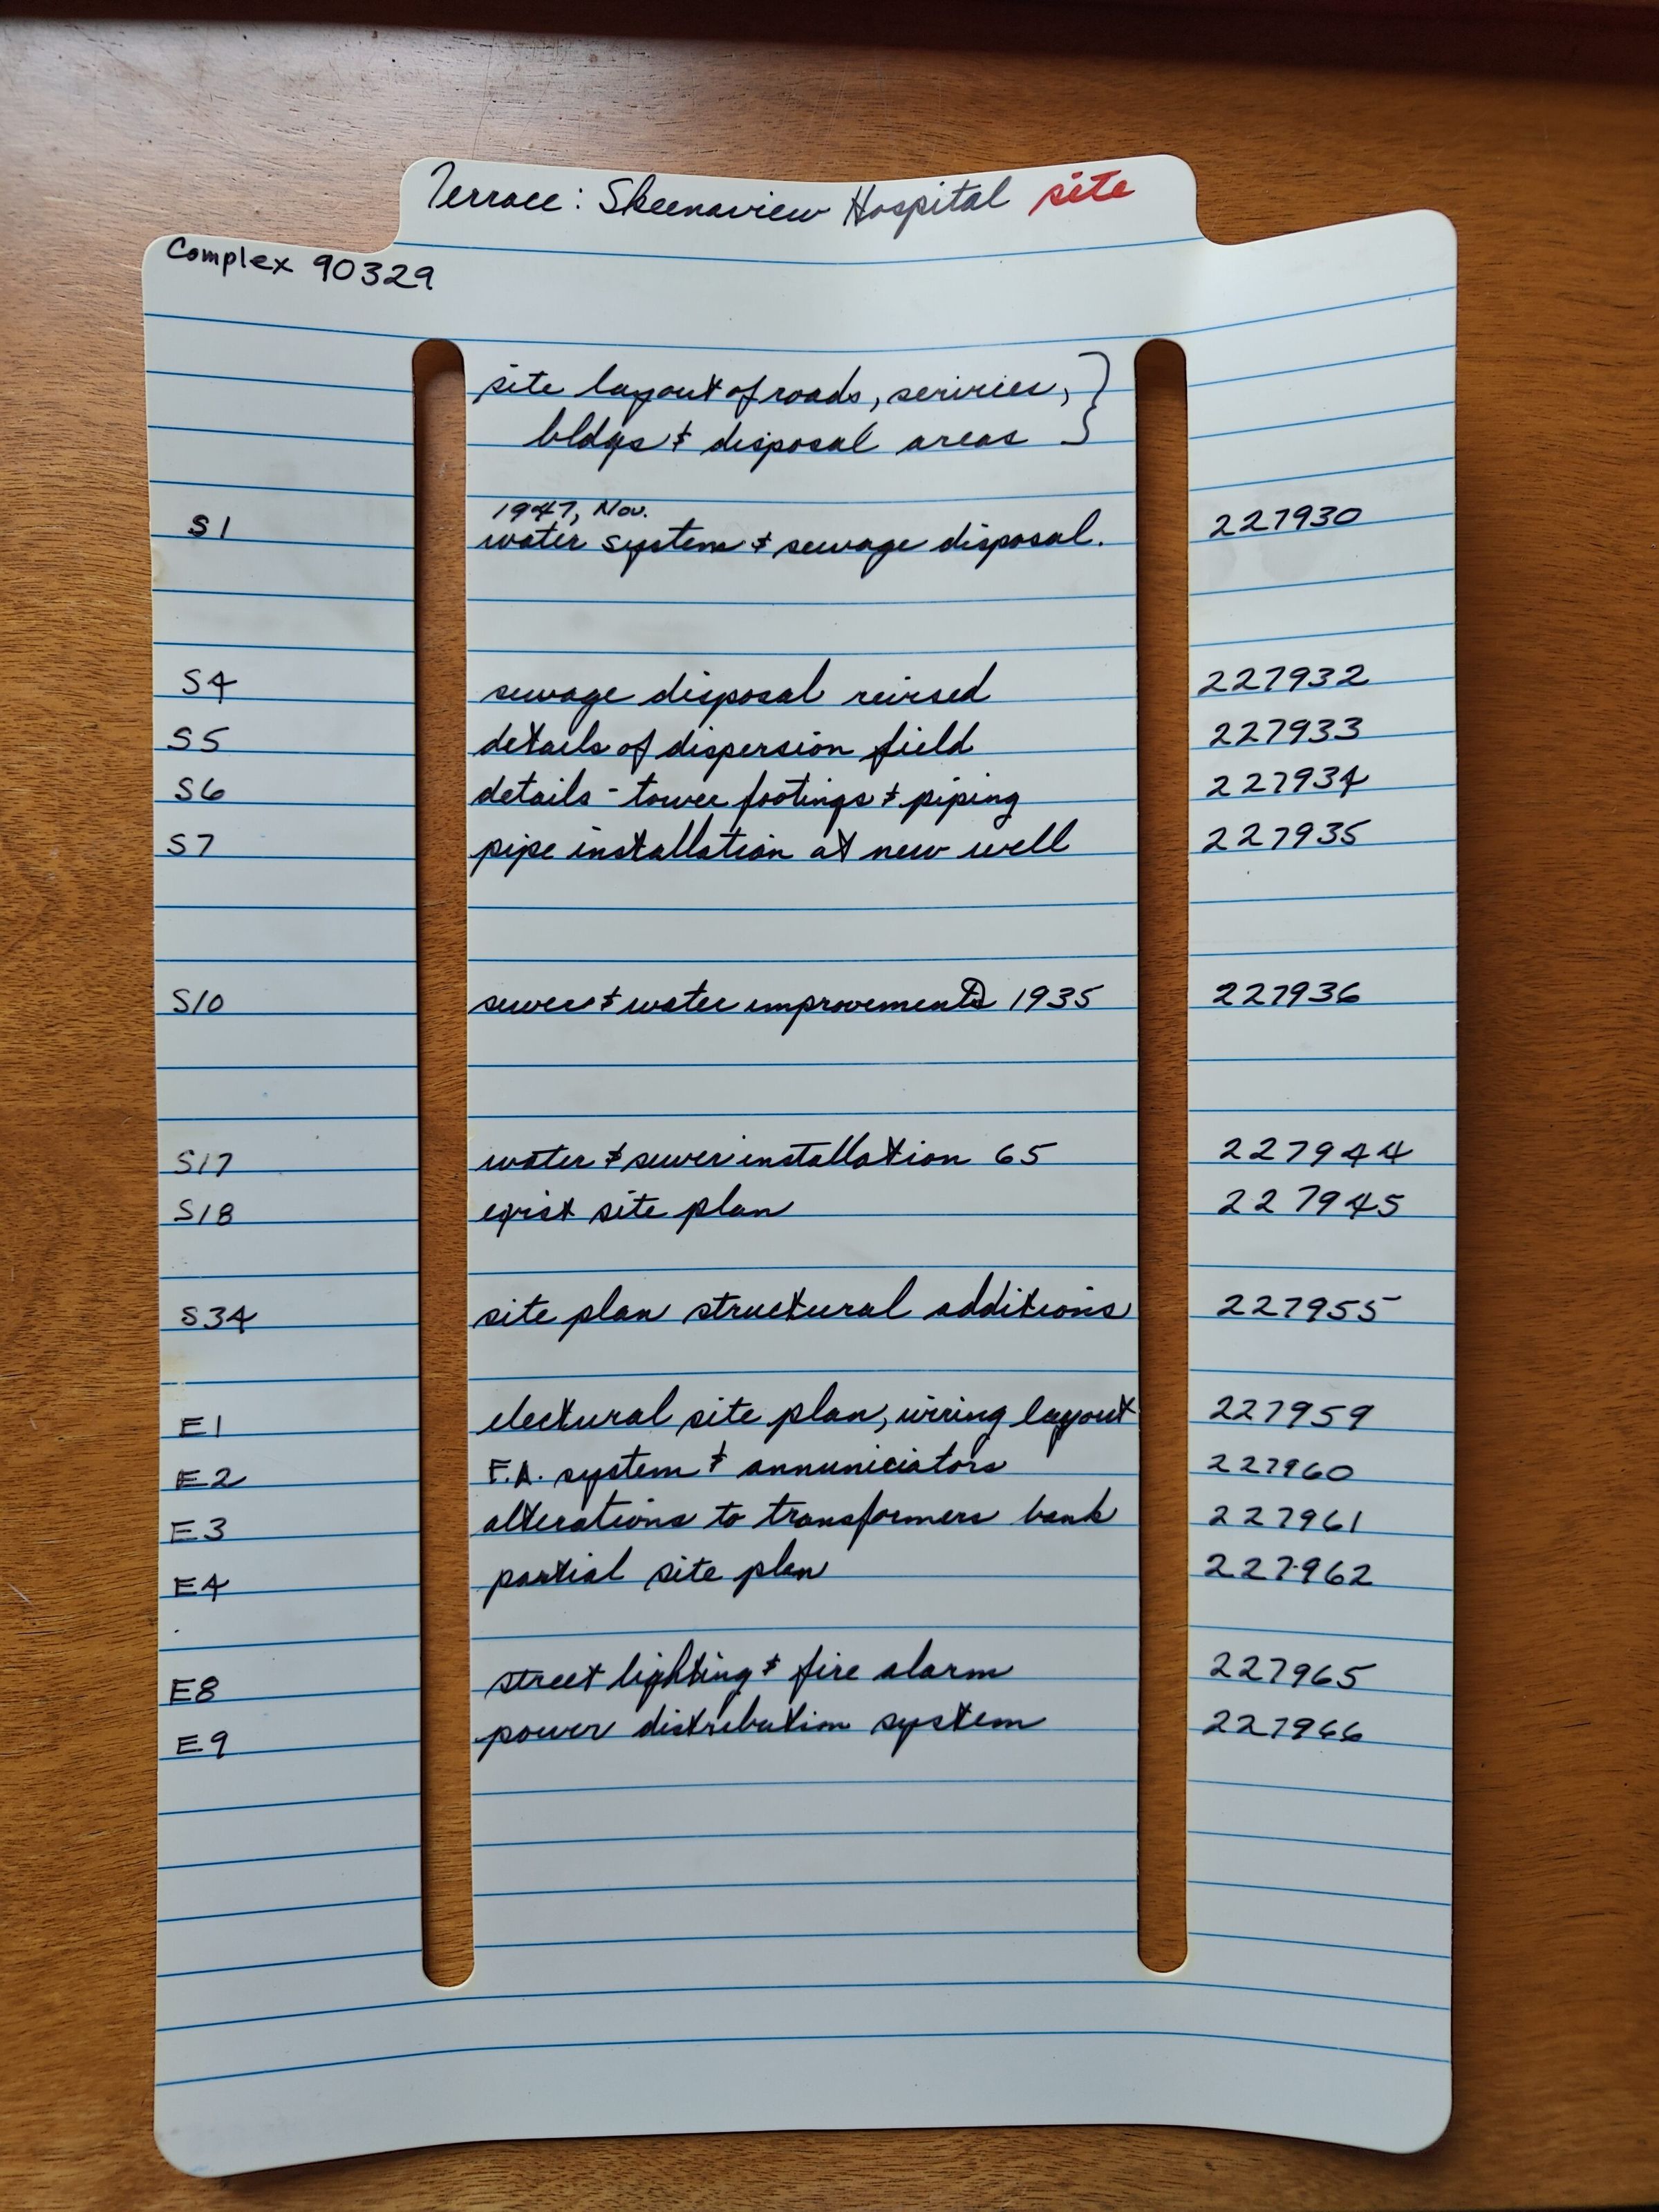 Terrace: Skeenaview Hospital site
Complex 90329
site layout of roads, serivies,
bldgs & disposal areas
1947, Nov.
S1 water system & sewage disposal. 227930
S4 sewage disposal reivsed 227932
S5 details of dispersion field 227933
S6 details - tower footings & piping 227934
S7 pipe installation at new well 227935
S10 sewer & water improvements 1935 227936
S17 water & sewer installation 65 227944
S18 exist site plan 227945
S34 site plan structural additions 227955
E1 electural site plan, wiring layout 227959
E2 F.A. system & annuniciators 227960
E3 alterations to transformers bank 227961
E4 partial site plan 227962
E8 street lighting & fire alarm 227965
E9 power distribution system 227966